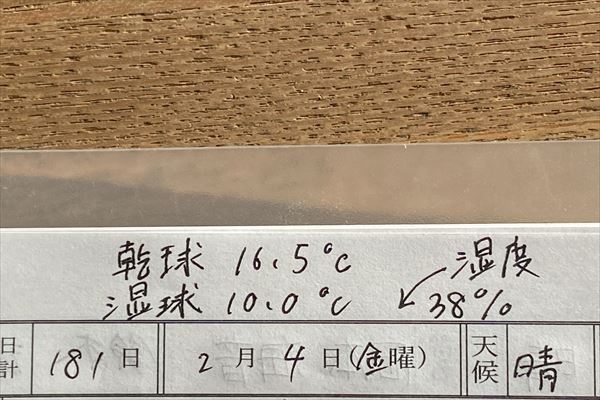 乾球 16.5℃ 湿度
湿球 10.0℃ 38%
日計 181日 2月4日(金曜) 天候 晴